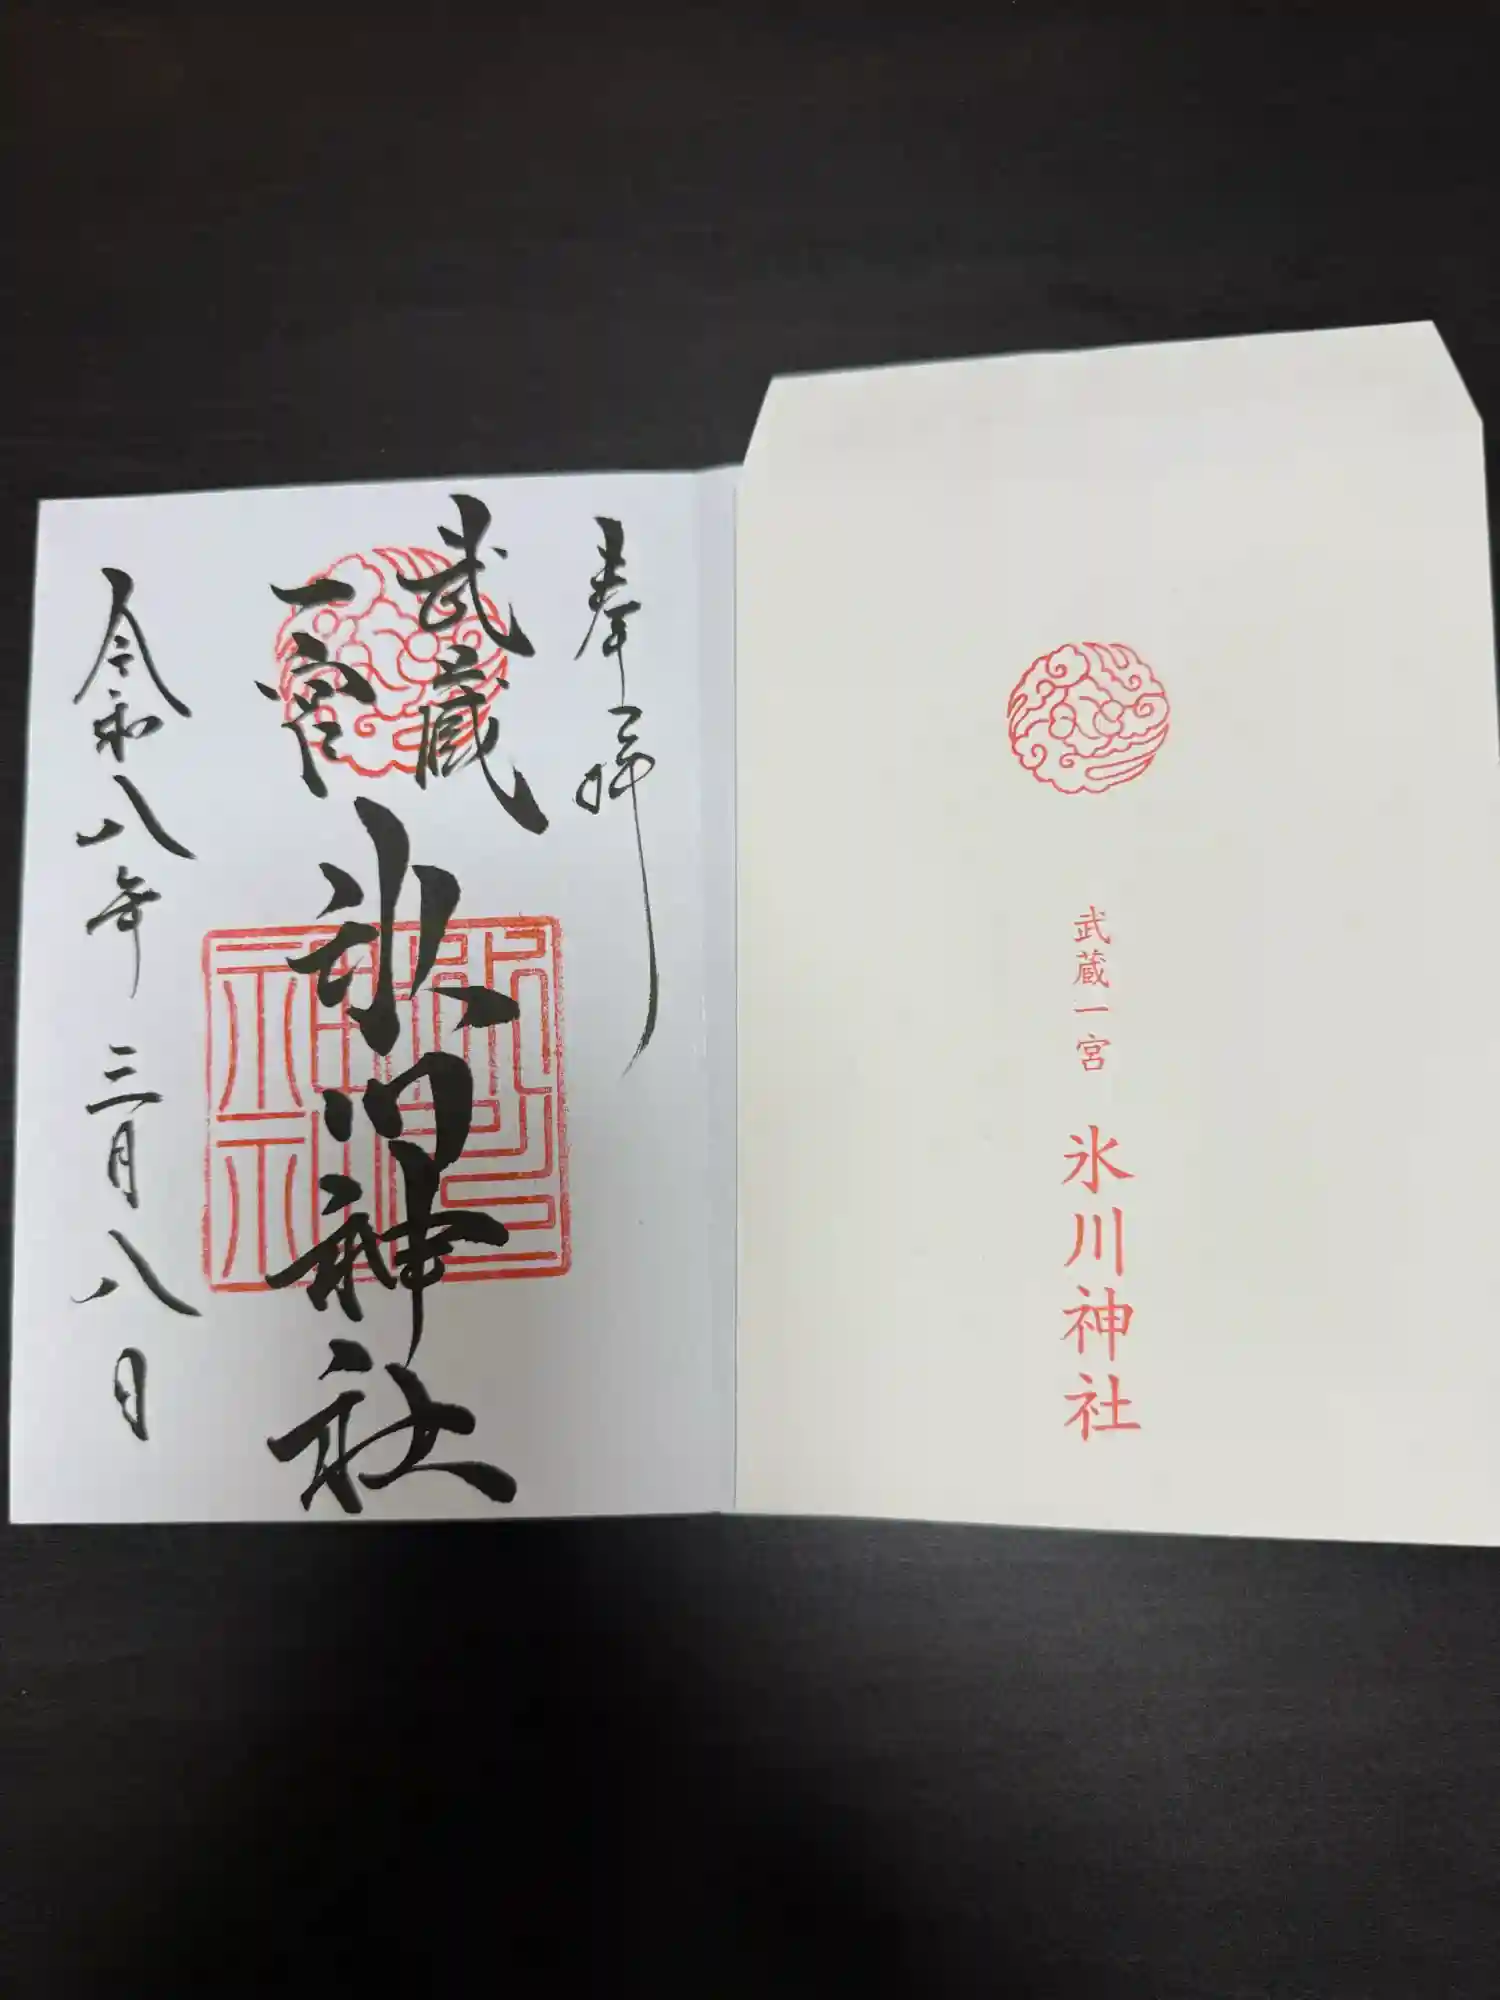 奉拝
武蔵
一宮
氷川神社
令和八年 三月八日
武蔵一宮 氷川神社